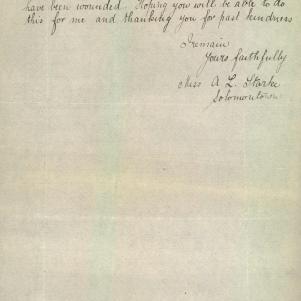 have been wounded. Hoping you will be able to do
this for me and thanking you for past kindness
I remain
Yours faithfully
Miss A L. Starke
Solomontown